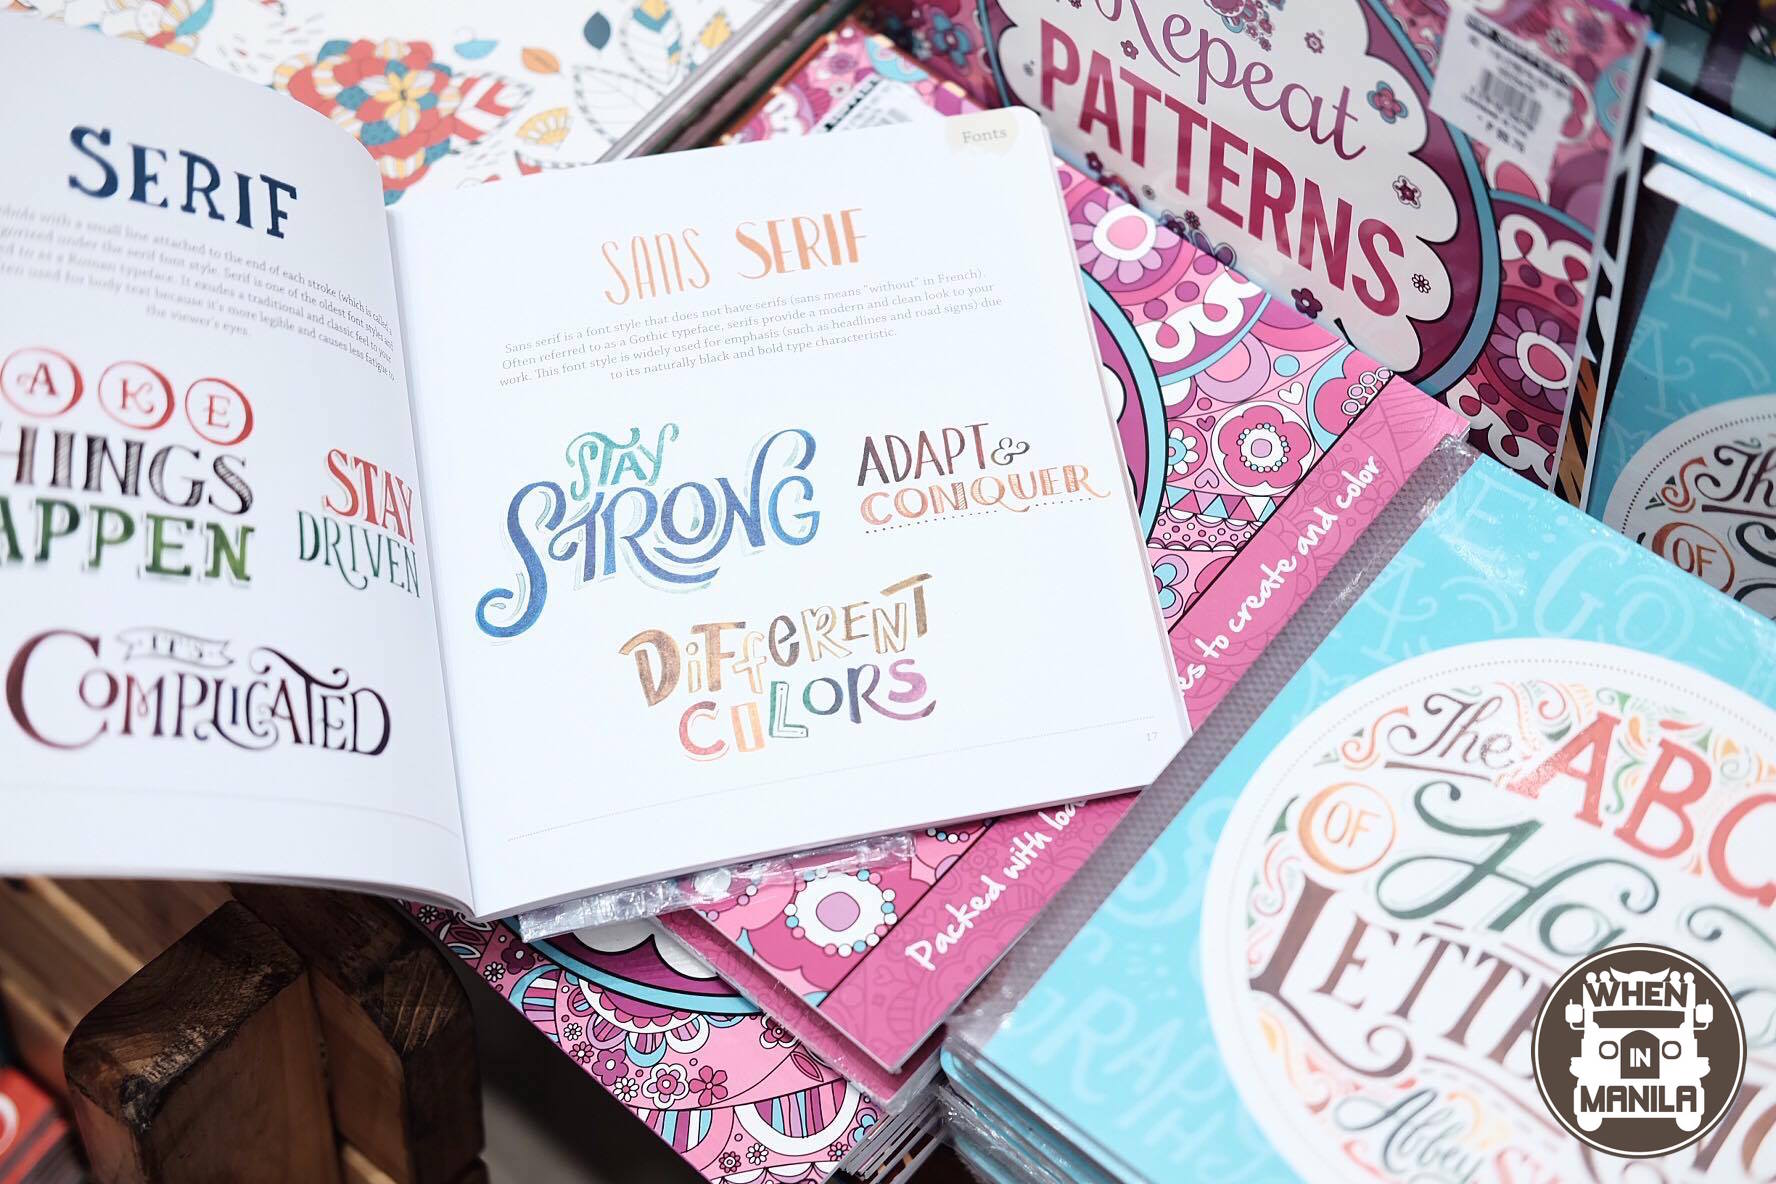 SERIF
mbols with a small line attached to the end of each stroke (which is called a
tegorized under the serif font style. Serif is one of the oldest font styles and
ed to as a Roman typeface. It exudes a traditional and classic feel to your
ten used for body text because it's more legible and causes less fatigue to
the viewer's eyes.
AKE
HINGS
APPEN
STAY
DRIVEN
IT'S
COMPLICATED
Fonts
SANS SERIF
Sans serif is a font style that does not have serifs (sans means "without" in French).
Often referred to as a Gothic typeface, serifs provide a modern and clean look to your
work. This font style is widely used for emphasis (such as headlines and road signs) due
to its naturally black and bold type characteristic.
STAY
STRONG
ADAPT &
CONQUER
DiffERENT
COLORS
17
Repeat
PATTERNS
es to create and color
Packed with
The
OF
The ABC
OF Ha
LETT
Abbey
WHEN
IN
MANILA